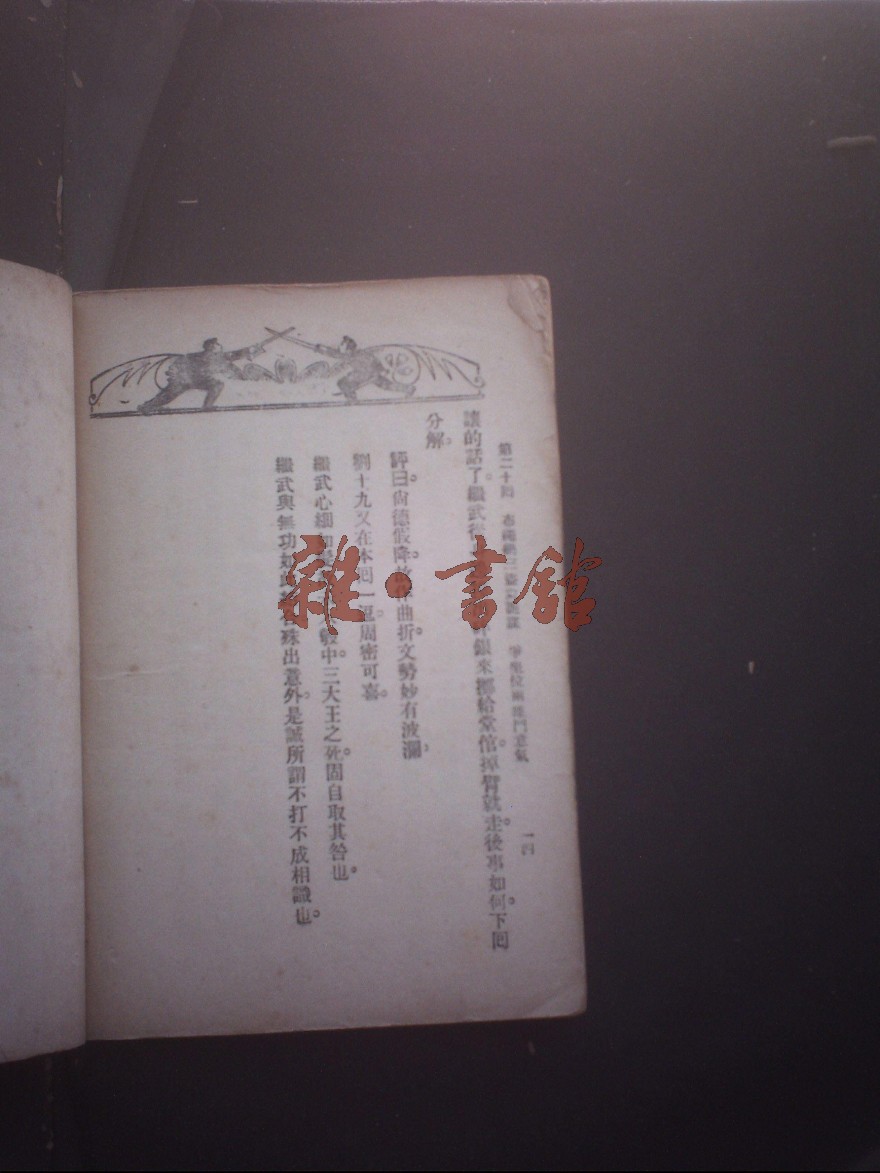 第二十回 爭座位兩雄鬥意氣
一四
讓的話了。繼武 銀來擲給堂倌。掉臂就走。後事如何。下回
分解。
評曰。尙德假降 曲折。文勢妙有波瀾。
劉十九又在本回一逗。周密可喜。
繼武心細如 中。三大王之死。固自取其咎也。
繼武與無功 殊出意外。是誠所謂不打不成相識也。
雜·書館